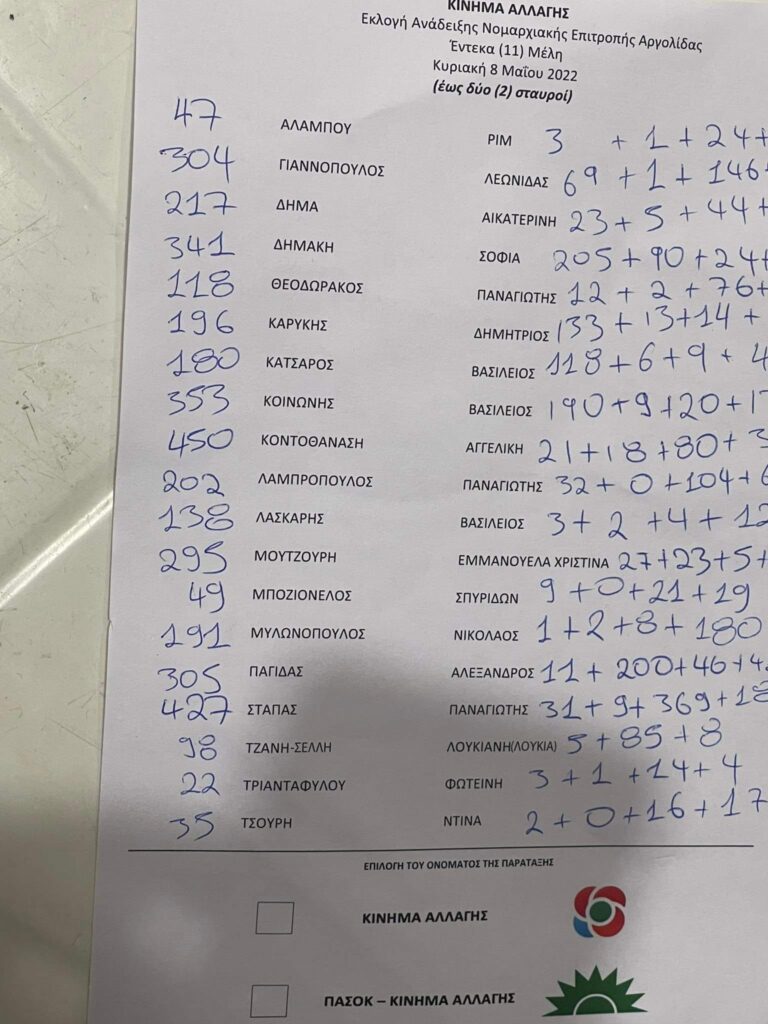 ΚΙΝΗΜΑ ΑΛΛΑΓΗΣ
Εκλογή Ανάδειξης Νομαρχιακής Επιτροπής Αργολίδας
Έντεκα (11) Μέλη
Κυριακή 8 Μαΐου 2022
(έως δύο (2) σταυροί)
47 ΑΛΑΜΠΟΥ ΡΙΜ 3 + 1 + 24 +
304 ΓΙΑΝΝΟΠΟΥΛΟΣ ΛΕΩΝΙΔΑΣ 69 + 1 + 146
217 ΔΗΜΑ ΑΙΚΑΤΕΡΙΝΗ 23 + 5 + 44 +
341 ΔΗΜΑΚΗ ΣΟΦΙΑ 205 + 90 + 24 +
118 ΘΕΟΔΩΡΑΚΟΣ ΠΑΝΑΓΙΩΤΗΣ 12 + 2 + 76 +
196 ΚΑΡΥΚΗΣ ΔΗΜΗΤΡΙΟΣ 133 + 13 + 14 +
180 ΚΑΤΣΑΡΟΣ ΒΑΣΙΛΕΙΟΣ 118 + 6 + 9 + 4
353 ΚΟΙΝΩΝΗΣ ΒΑΣΙΛΕΙΟΣ 190 + 9 + 20 + 1
450 ΚΟΝΤΟΘΑΝΑΣΗ ΑΓΓΕΛΙΚΗ 21 + 18 + 80 + 3
202 ΛΑΜΠΡΟΠΟΥΛΟΣ ΠΑΝΑΓΙΩΤΗΣ 32 + 0 + 104 + 6
138 ΛΑΣΚΑΡΗΣ ΒΑΣΙΛΕΙΟΣ 3 + 2 + 4 + 12
295 ΜΟΥΤΖΟΥΡΗ ΕΜΜΑΝΟΥΕΛΑ ΧΡΙΣΤΙΝΑ 27 + 23 + 5 +
49 ΜΠΟΖΙΟΝΕΛΟΣ ΣΠΥΡΙΔΩΝ 9 + 0 + 21 + 19
191 ΜΥΛΩΝΟΠΟΥΛΟΣ ΝΙΚΟΛΑΟΣ 1 + 2 + 8 + 180
305 ΠΑΓΙΔΑΣ ΑΛΕΞΑΝΔΡΟΣ 11 + 200 + 46 + 4
427 ΣΤΑΠΑΣ ΠΑΝΑΓΙΩΤΗΣ 31 + 9 + 369 + 18
98 ΤΖΑΝΗ-ΣΕΛΛΗ ΛΟΥΚΙΑΝΗ(ΛΟΥΚΙΑ) 5 + 85 + 8
22 ΤΡΙΑΝΤΑΦΥΛΟΥ ΦΩΤΕΙΝΗ 3 + 1 + 14 + 4
35 ΤΣΟΥΡΗ ΝΤΙΝΑ 2 + 0 + 16 + 17
ΕΠΙΛΟΓΗ ΤΟΥ ΟΝΟΜΑΤΟΣ ΤΗΣ ΠΑΡΑΤΑΞΗΣ
ΚΙΝΗΜΑ ΑΛΛΑΓΗΣ
ΠΑΣΟΚ – ΚΙΝΗΜΑ ΑΛΛΑΓΗΣ